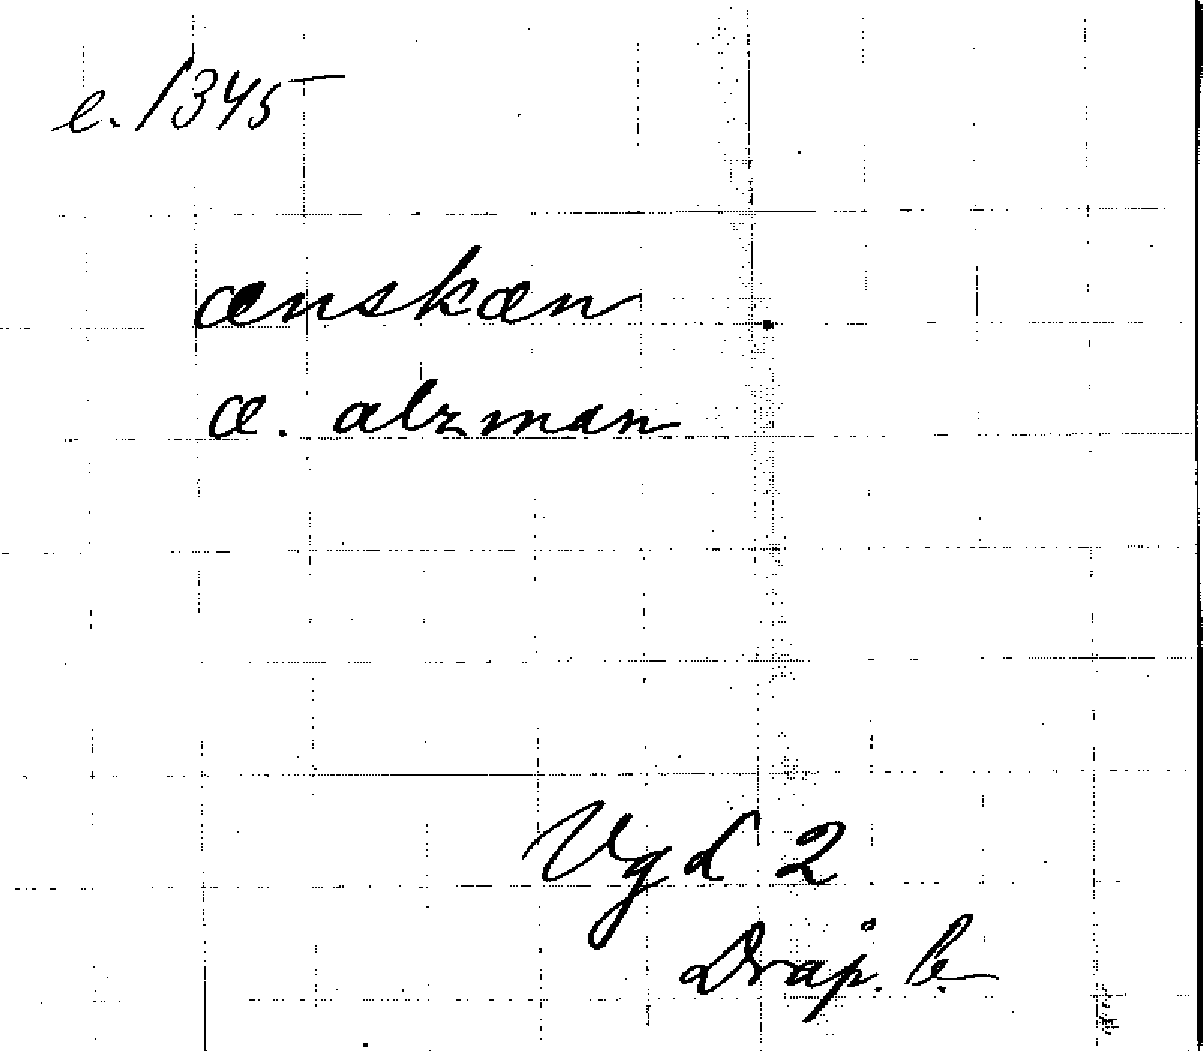 c. 1345
ænskæn
æ. alzman
VgL 2
Dråp. b.